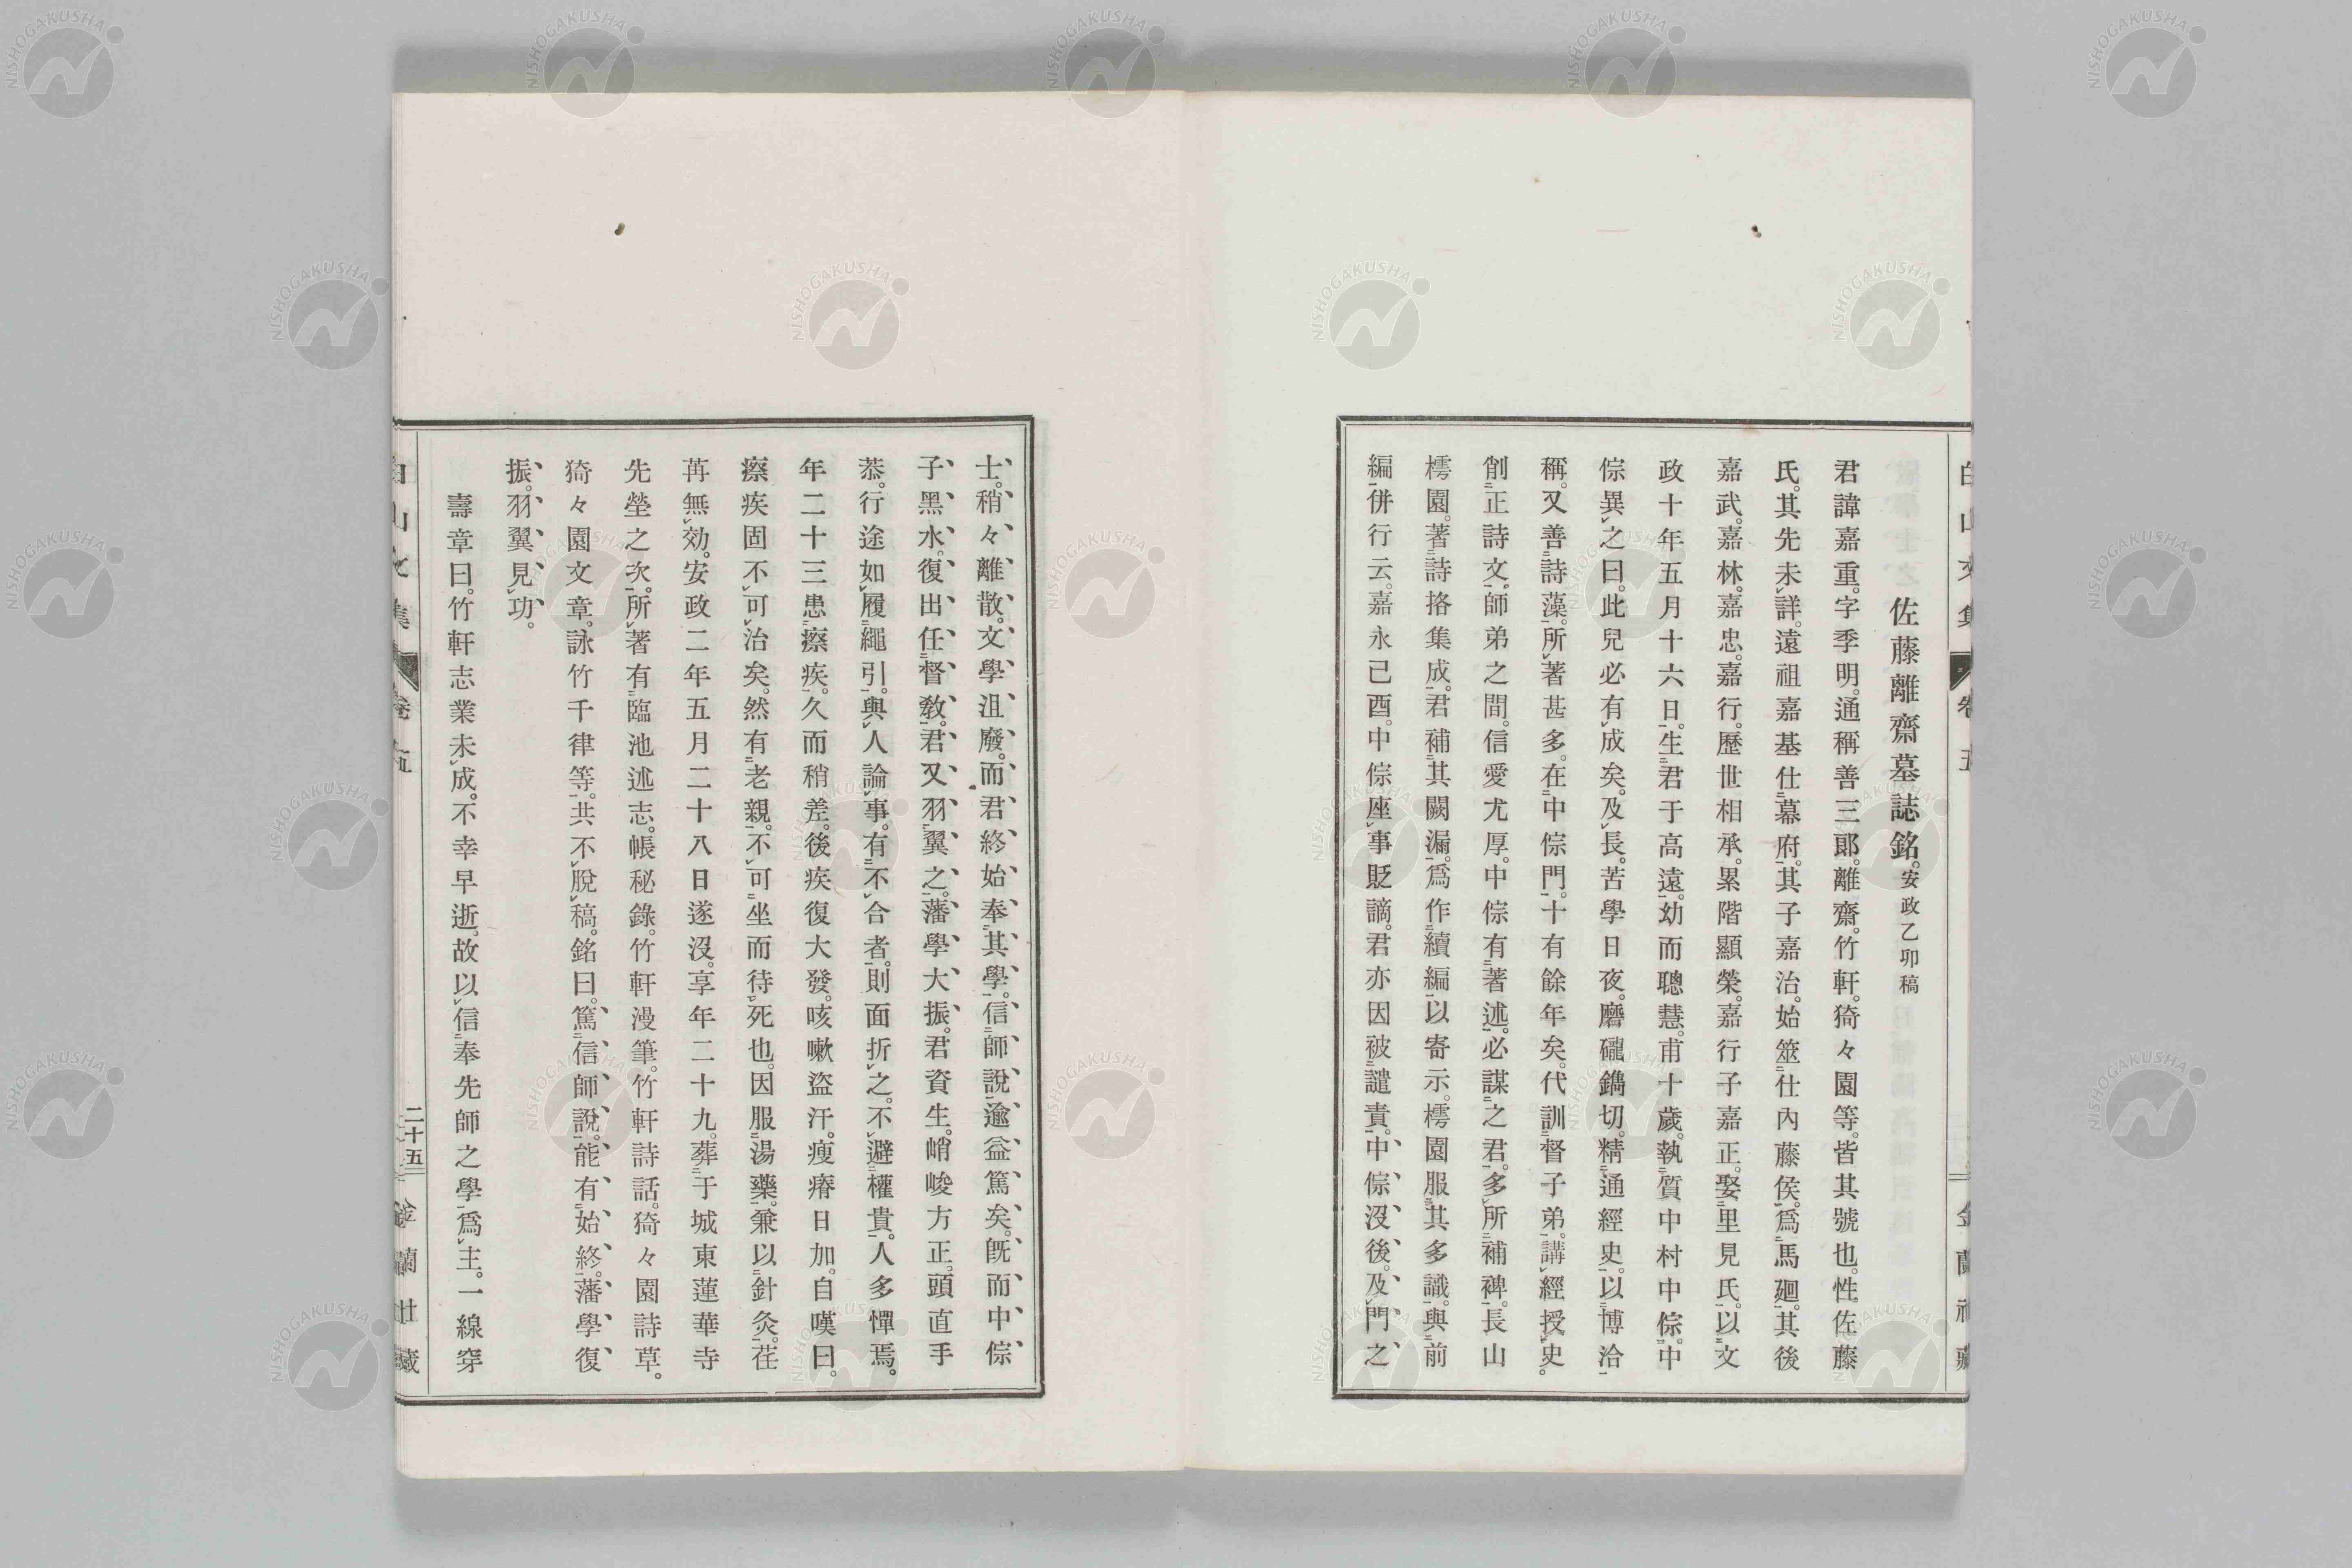 佐藤離齋墓誌銘。安政乙卯稿
君諱嘉重。字季明。通稱善三郎。離齋。竹軒。猗々園等。皆其號也。性佐藤
氏。其先未詳。遠祖嘉基仕幕府。其子嘉治。始筮仕內藤侯。爲馬廻。其後
嘉武。嘉林。嘉忠。嘉行。歷世相承。累階顯榮。嘉行子嘉正。娶里見氏。以文
政十年五月十六日。生君于高遠。幼而聰慧。甫十歲。執質中村中倧。中
倧異之曰。此兒必有成矣。及長。苦學日夜。磨礲鐫切。精通經史。以博洽
稱。又善詩藻。所著甚多。在中倧門。十有餘年矣。代訓督子弟。講經授史。
削正詩文。師弟之間。信愛尤厚。中倧有著述。必謀之君。多所補裨。長山
樗園。著詩挌集成。君補其闕漏。爲作續編以寄示。樗園服其多識。與前
編併行云。嘉永己酉。中倧座事貶謫。君亦因被譴責。中倧沒後。及門之
士。稍々離散。文學沮廢。而君終始奉其學。信師說逾益篤矣。旣而中倧
子黑水。復出任督敎。君又羽翼之。藩學大振。君資生。峭峻方正。頭直手
恭。行途如履繩引。與人論事。有不合者。則面折之。不避權貴。人多憚焉。
年二十三患瘵疾。久而稍差。後疾復大發。咳嗽盜汗。瘦瘠日加。自嘆曰。
瘵疾固不可治矣。然有老親。不可坐而待死也。因服湯藥。兼以針灸。荏
苒無効。安政二年五月二十八日遂沒。享年二十九。葬于城東蓮華寺
先塋之次。所著有臨池述志。帳秘錄。竹軒漫筆。竹軒詩話。猗々園詩草。
猗々園文章。詠竹千律等。共不脫稿。銘曰。篤信師說。能有始終。藩學復
振。羽翼見功。
壽章曰。竹軒志業未成。不幸早逝。故以信奉先師之學爲主。一線穿
白山文集 卷五 二十五 金蘭社藏